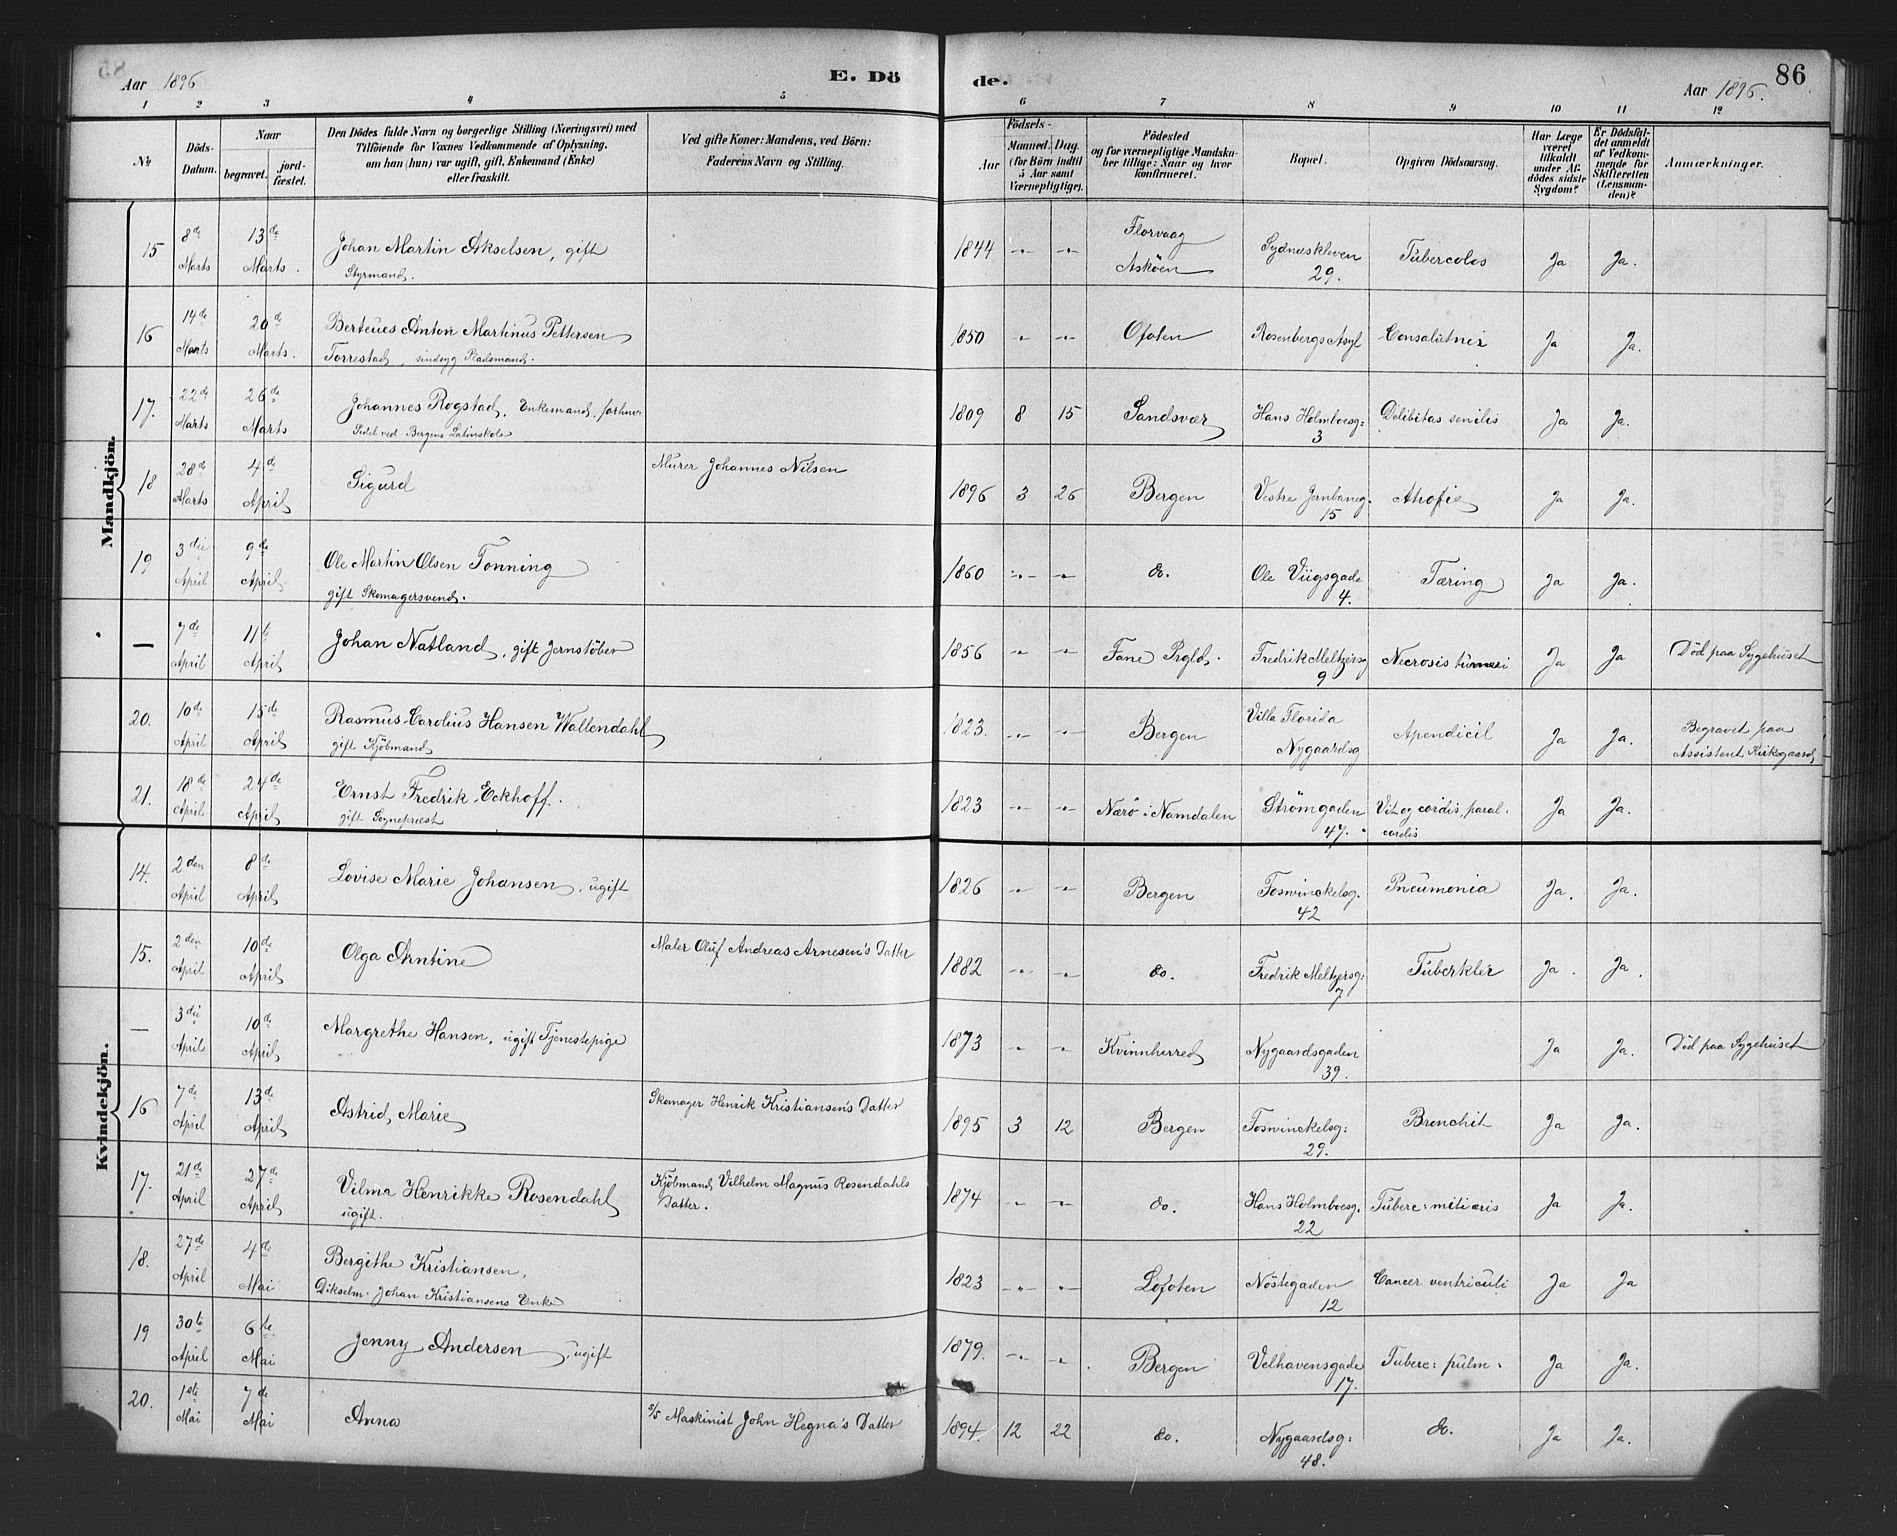 Aar 1896 E. Dö de. Aar 1896. 86
1 2 3 4 5 6 7 8 9 10 11 12
No
Döds-Datum.
Naar
begravet. jordfæstet.
Den Dödes fulde Navn og borgerlige Stilling (Næringsvei) med
Tilföiende for Voxnes Vedkommende af Oplysning,
om han (hun) var ugift, gift, Enkemand (Enke)
eller fraskilt.
Ved gifte Koner: Mandens, ved Börn:
Faderens Navn og Stilling.
Födsels-
Aar
Maaned. Dag.
(for Börn indtil
5 Aar samt
Værnepligtige).
Födested
og for værnepligtige Mandskaber
tillige: Naar og hvor
konfirmeret.
Bopæl.
Opgiven Dödsaarsag.
Har Læge
været
tilkaldt
under Afdödes
sidste
Sygdom?
Er Dödsfaldet
anmeldt
af Vedkommende
for
Skifteretten
(Lensmanden)?
Anmærkninger.
Mandkjön.
15 8de Marts 13de Marts. Johan Martin Akselsen, gift 1844 -"- -"- Florvaag Asköen Sydnæskleven 29. Tubercolos Ja Ja.
Styrmand.
16 14de Marts 20de Marts. Berteues Anton Martinus Pettersen 1850 -"- -"- Ofoten Rosenbergs Asyl Ja Ja.
Torrestad, sindsyg Pladsmand.
17. 22de Marts 26de Marts Johannes Rogstad, Enkemand, forhnv. 1809 8 15 Sandsvær Hans Holmboesg: 3 Delibitas senilis Ja Ja.
Pedel ved Bergens Latinskole
18 28de Marts 4de April Sigurd Murer Johannes Nilsen 1896 3 26 Bergen Vestre Jernbaneg. 15 Atrofie Ja Ja.
19 3die April 9de April Ole Martin Olsen Tönning 1860 -"- -"- do. Ole Viigsgade 4. Tæring Ja Ja.
gift Skomagersvend.
— 7de April 11te April Johan Natland, gift Jernstöber 1856 -"- -"- Fane Prgld. Fredrik Meltzersg 9 Necrosis Ja Ja Död paa Sygehuset
20. 10de April 15de April Rasmus Carolius Hansen Wallendahl 1823. -"- -"- Bergen Villa Florida Nygaardsg Apendicil Ja Ja. Begravet paa Assistent Kirkegaard
gift Kjöbmand
21. 18de April 24de April Ernst Fredrik Eckhoff. 1823 -"- -"- Nærö i Namdalen Strömgaden 47. Vit og cordis, paral. cordis Ja Ja.
gift Sognepræst
Kvindekjön.
14. 2den April 8de April Lovise Marie Johansen, ugift 1826 -"- -"- Bergen Foswinckelsg. 42 Pneumonia Ja. Ja.
15. 2den April 10de April Olga Arntine Maler Oluf Andreas Arnesen's Datter 1882 -"- -"- do. Fredrik Meltzersg: 7 Tuberkler Ja. Ja.
— 3die April 10de April Margrethe Hansen, ugift Tjenestepige 1873 -"- -"- Kvinnherred Nygaardsgaden 39. Ja Ja. Död paa Sygehuset
16 7de April 13de April Astrid, Marie Skomager Henrik Kristiansen's Datter 1895 3 12 Bergen Foswinckelsg: 29. Bronchit Ja Ja.
17. 21de April 27de April Vilma Henrikke Rosendahl Kjöbmand Vilhelm Magnus Rosendahls Datter. 1874 -"- -"- do. Hans Holmboesg. 22 Tuberc: miliæris Ja Ja.
ugift.
18. 27de April 4de Mai Bergithe Kristiansen, 1823 -"- -"- Lofoten Nöstegaden 12 Cancer ventriculi Ja Ja
Johan Kristiansens Enke
19 30te April 6te Mai Jenny Andersen, ugift 1879. -"- -"- Bergen Velhavensgade 17. Tuberc: pulm: Ja Ja.
20. 1ste Mai 7de Mai Anna s/5 Maskinist John Hegna's Datter 1894. 12 22 do. Nygaardsg: 48. do. Ja Ja.